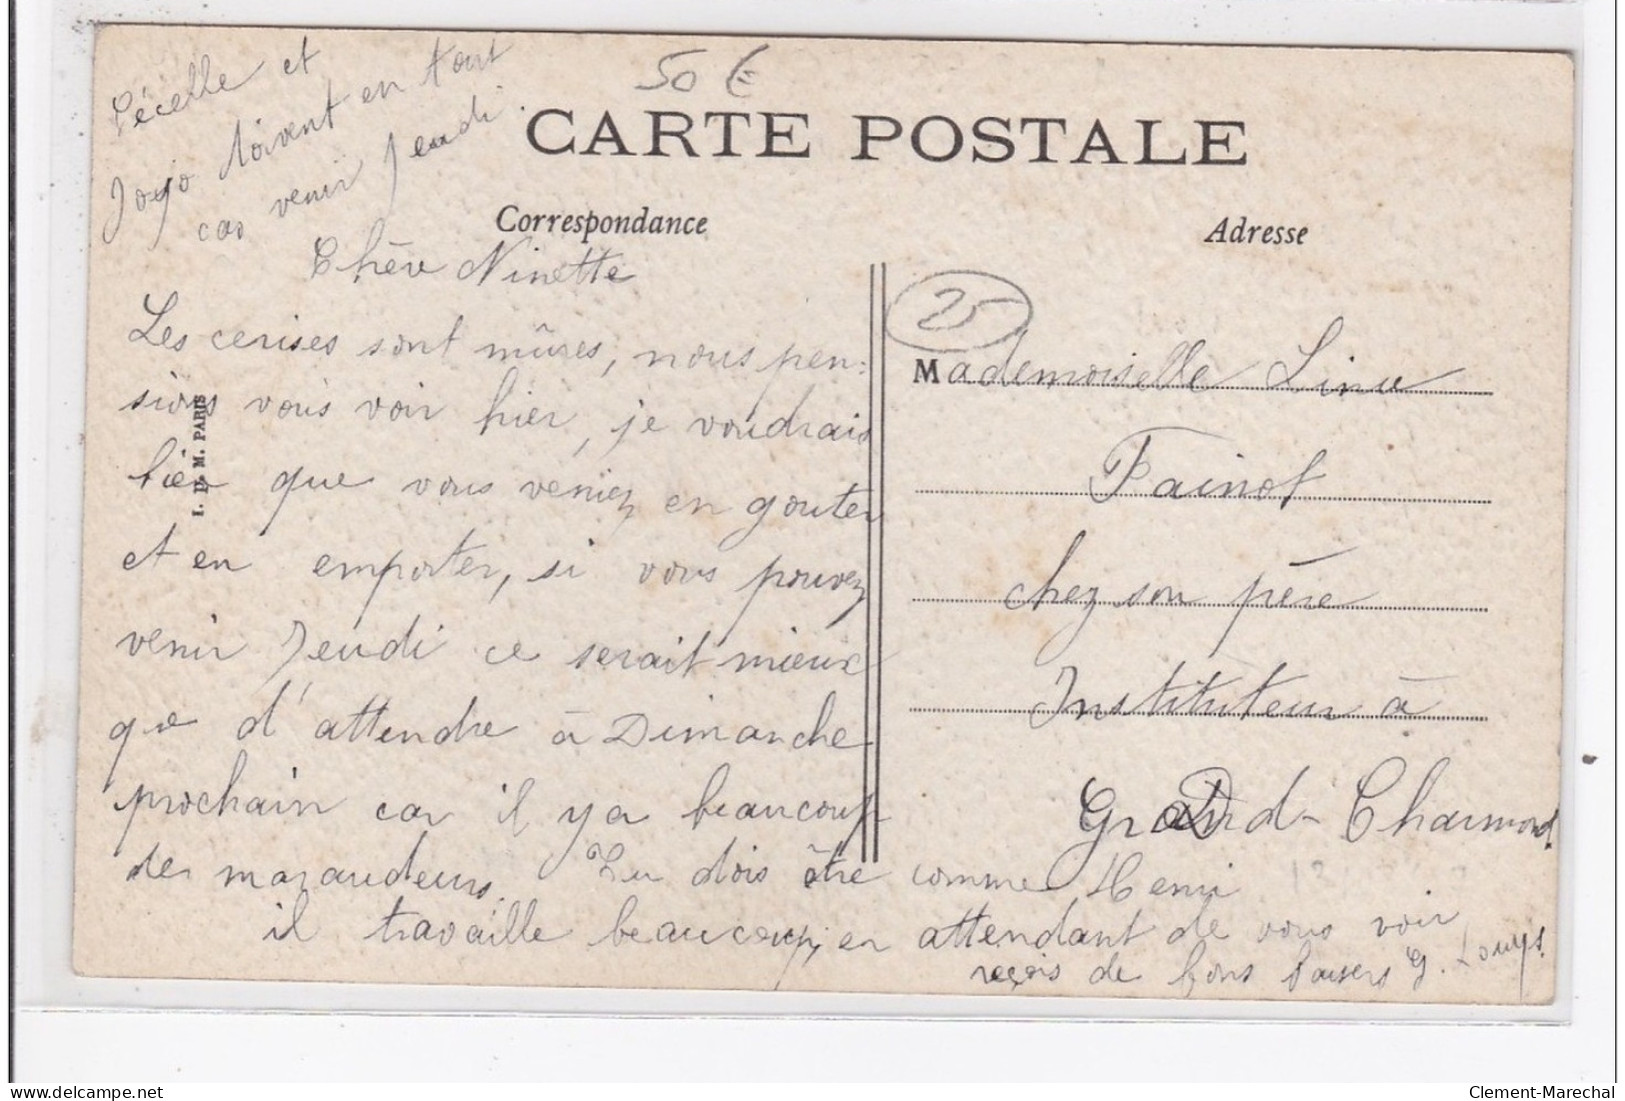 50 €
Cécelle et
Jojo doivent en tout
cas venir Jeudi
CARTE POSTALE
Correspondance
Adresse
Chère Ninette
Les cerises sont mûres, nous pen-
sions vous voir hier, je voudrais
bien que vous veniez en gouter
et en emporter, si vous pouvez
venir Jeudi ce serait mieux
que d'attendre à Dimanche
prochain car il y a beaucoup
de maraudeurs. Tu dois être comme Henri
il travaille beaucoup, en attendant de vous voir
reçois de bons baisers G. Louys.
I. D. M. PARIS
25
Mademoiselle Line
Fainot
chez son père
Instituteur à
Grand-Charmond.
delcampe.net
Clement-Marechal